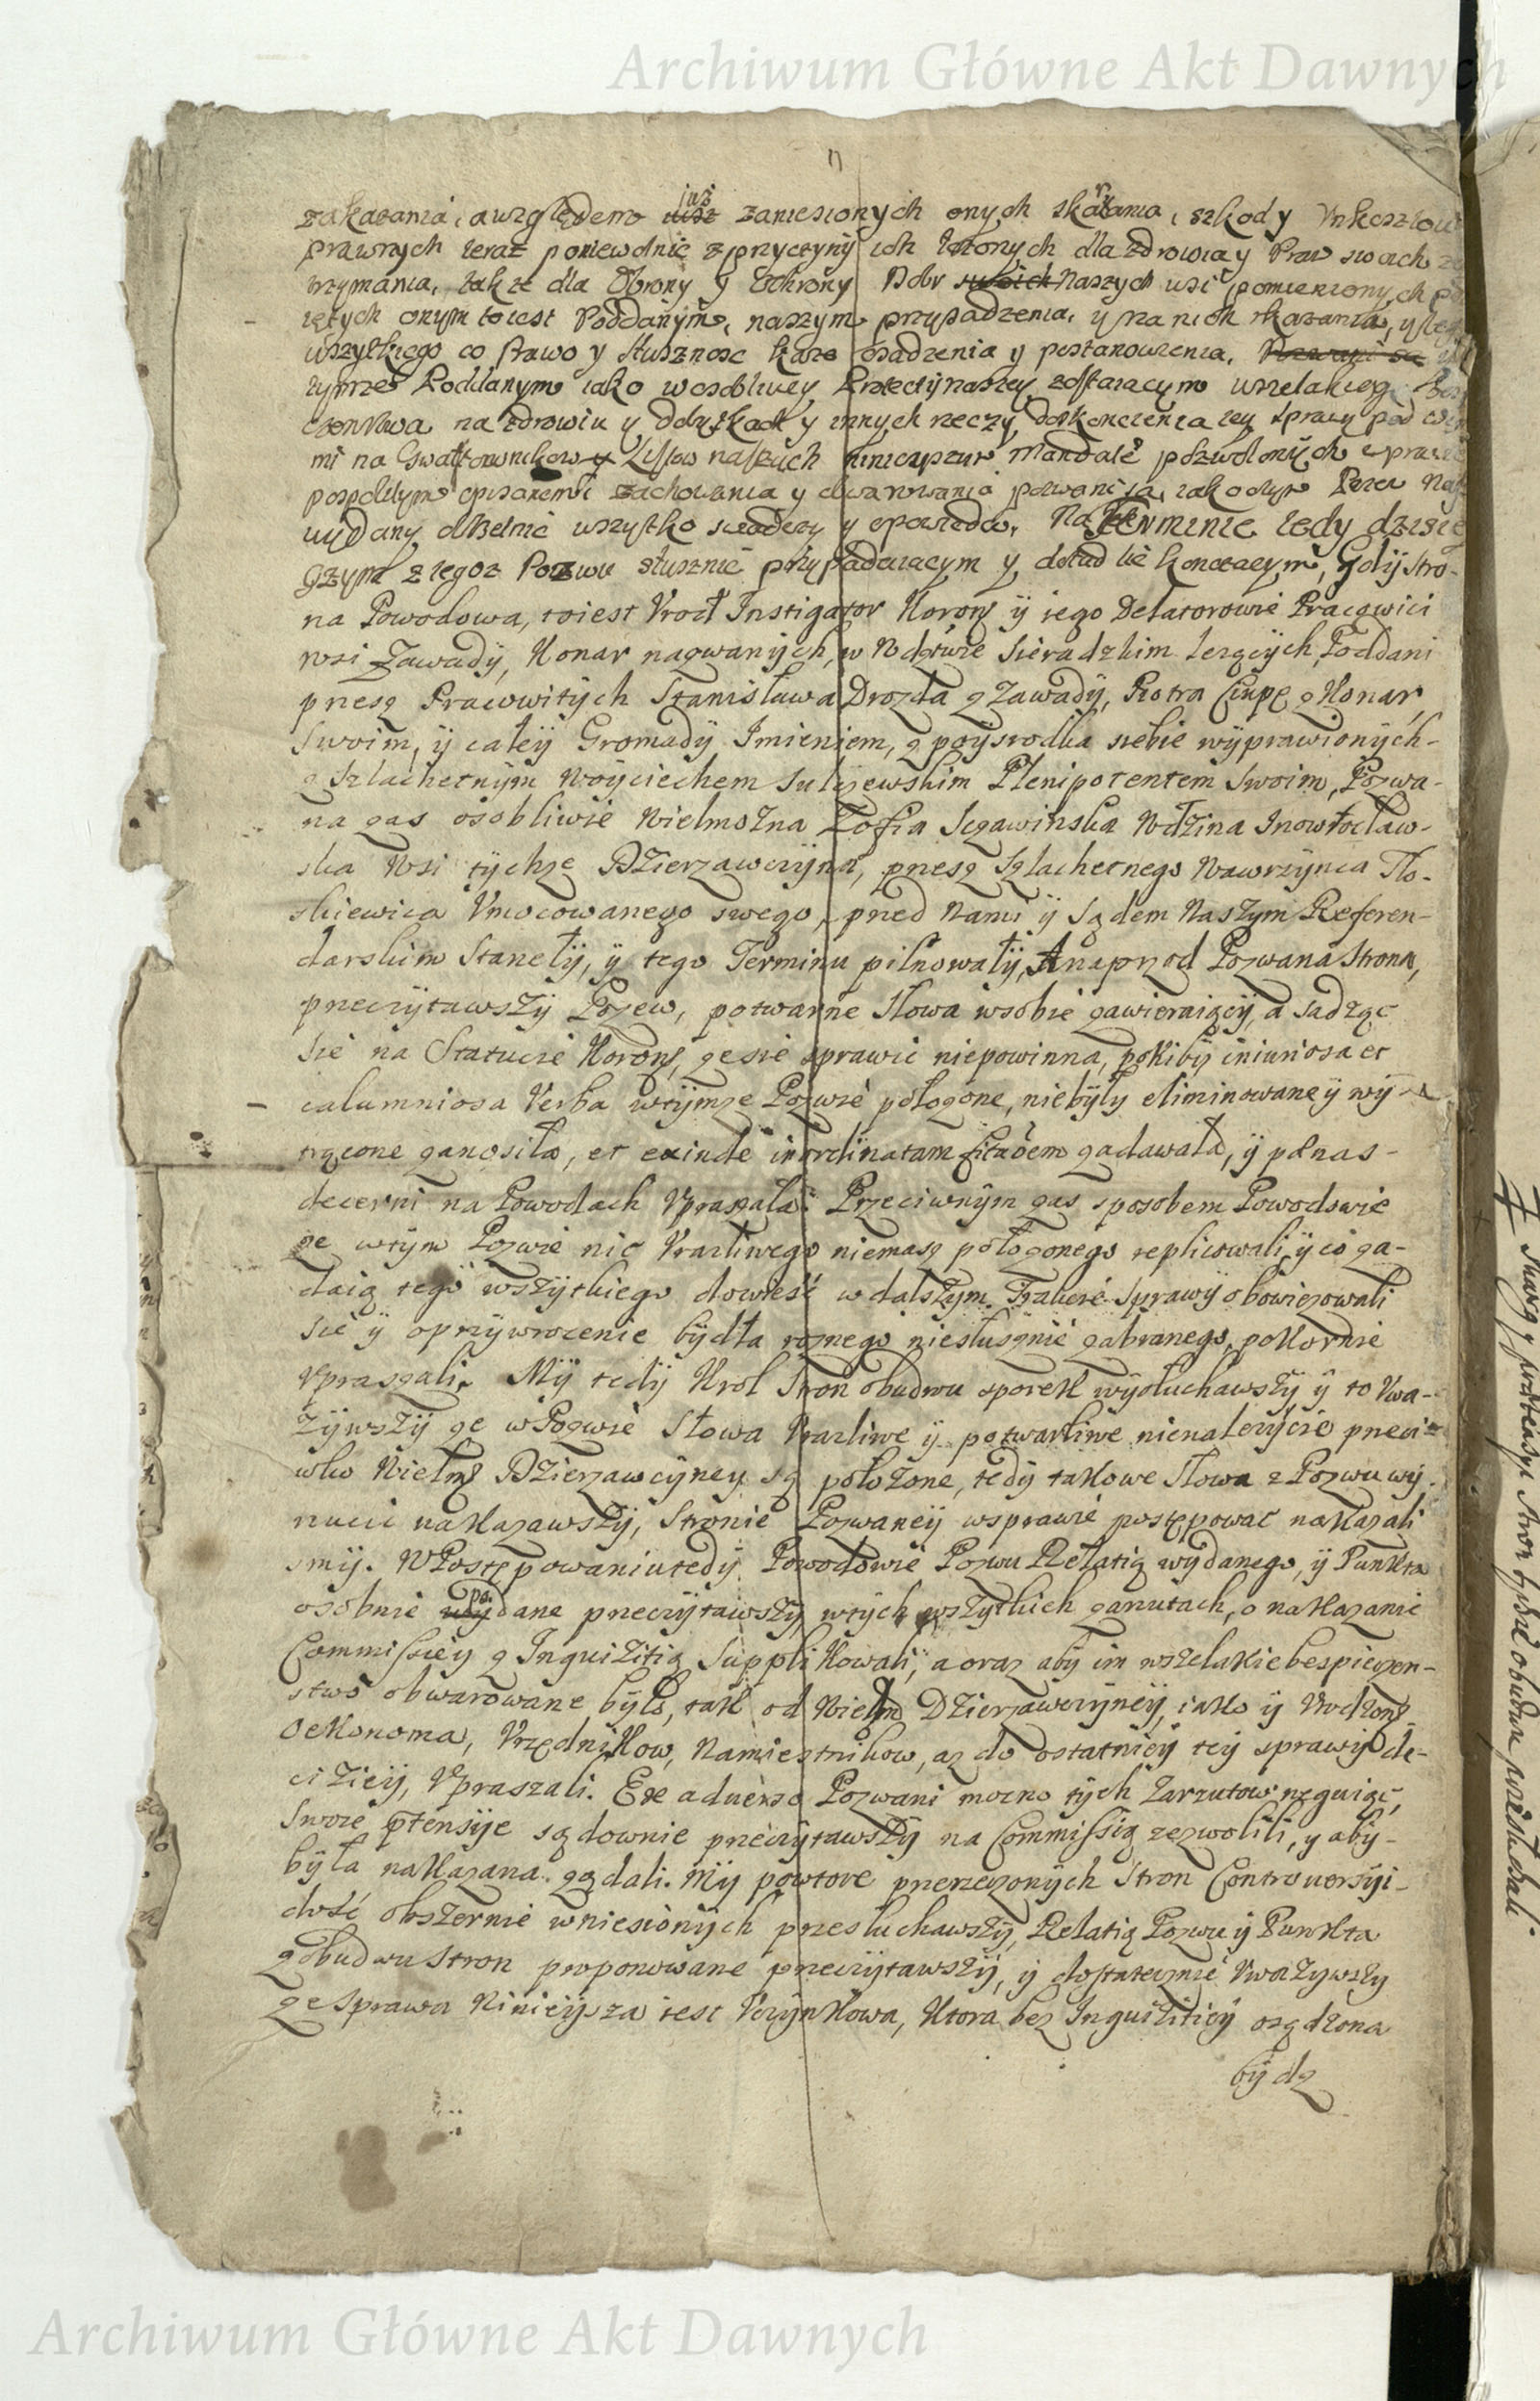 Archiwum Główne Akt Dawnych
zakazania, a względem iuż zaniesionych onych skarania, szkody
prawnych teraz poniewolnie z przyczyny ich łożonych dla zdrowia y Praw swoich
trzymania, także dla Obrony y Ochrony Dobr swoich Naszych wsi pomienionych
tych onym to iest Poddanym, naszym przysądzenia, y na nich skazania,
wszytkiego co Prawo y słusznosc każe osądzenia y postanowienia,
tymże Poddanym iako w osobliwey Protectij naszey zostaiącym wszelakiego
czenstwa na zdrowiu y dobytkach y innych rzeczy do skonczenia tey sprawy pod
mi na Gwałtownikow y Listow naszych Mandaté pozwolonych
pospolitym opisanemi zachowania y obwarowania pozwani są, iako o tym Pozew
wydany obszernie wszystko swiadczy y opowieda. Na Terminie tedy dzisie
szym z tegoż Pozwu słusznie przypadaiącym y dotąd się konczącym, Gdy Stro-
na Powodowa, to iest Vrod Instigator Korony ÿ iego Delatorowie Pracowici
wsi Zawadÿ, Konar nazwanÿch, w Wdztwie Sieradzkim leżącÿch, Poddani
przez Pracowitÿch Stanisława Drozda z Zawadÿ, Piotra Ciupę z Konar,
Swoim, ÿ całeÿ Gromadÿ Imieniem, z poÿsrodka siebie wÿprawionÿch
z Szlachetnÿm Woÿciechem Sulÿewskim Plenipotentem Swoim, Pozwa-
na zas osobliwie Wielmożna Zofia Szgawinska Wdzina Inowrocław-
ska Wsi tÿchże Dzierzawczÿna, przez Szlachetnego Wawrzÿnca Tło-
skiewica Vmocowanego swego, przed Nami ÿ Sądem Naszÿm Referen-
darskim Stanełÿ, ÿ tego Terminu pilnowałÿ, A naprzod Pozwana Strona,
przeczÿtawszÿ Pozew, potwarne Słowa w sobie zawieraiącÿ, a sadząc
sie na Statucie Korony, że sie sprawic niepowinna, pokibÿ iniuriosa et
calumniosa Verba w tÿmże Pozwie położone, niebÿłÿ eliminowane ÿ wÿ-
rzucone zanosiła, et exinde inordinatam citaõem zadawała, ÿ pænas
decerni na Powodach Vpraszała. Przeciwnÿm zas sposobem Powodowie
że w tÿm Pozwie nic Vrazliwego niemasz położonego replicowali ÿ co za-
daią tego wszÿtkiego dowiesc w dalszÿm Trakcie Sprawÿ obowiezowali
sie ÿ o przÿwrocenie bÿdła roznego niesłusznie zabranego, pokornie
Vpraszali. Mÿ tedÿ Krol Stron obudwu sporek wÿsłuchawszÿ ÿ to Vwa-
żÿwszÿ że w Pozwie Słowa Vrazliwe ÿ potwarliwe nienależÿcie przeci-
wko Wielmo Dzierzawczÿneÿ są położone, tedÿ takowe Słowa z Pozwu wÿ-
rzucic nakazawszÿ, Stronie Pozwaneÿ w sprawie postępowac nakazali
smÿ. W Postępowaniu tedÿ Powodowie Pozwu Relatią wÿdanego, ÿ Punkta
osobnie podane przeczÿtawszÿ, w tÿch wszÿtkich zarzutach, o nakazanie
Commissieÿ z Inquizitią Supplikowali, a oraz abÿ im wszelakie bespieczen-
stwo obwarowane bÿło, tak od Wielmo Dzierzawczÿneÿ, iako ÿ Vrodzono
Oekonoma, Vrzędnikow, Namiestnikow, az do ostatnieÿ teÿ sprawÿ de-
ciziey, Vpraszali. Ex adverso Pozwani mocno tÿch Zarzutow neguiąc,
Swoie ptensÿe sądownie przeczÿtawszÿ na Commissią zezwolili, y abÿ
bÿła nakazana żądali. Mÿ powtore przerzeczonÿch Stron Controuersÿi
dość obszernie wniesionÿch przesłuchawszÿ, Relatią Pozwu ÿ Punkta
z obudwu Stron proponowane przeczÿtawszÿ, ÿ dostatecznie Vważÿwszÿ
że Sprawa Ninieÿsza iest Vczÿnkowa, ktora bez Inquizitieÿ osądzona
bÿdz
Stron obudwu
Archiwum Główne Akt Dawnych